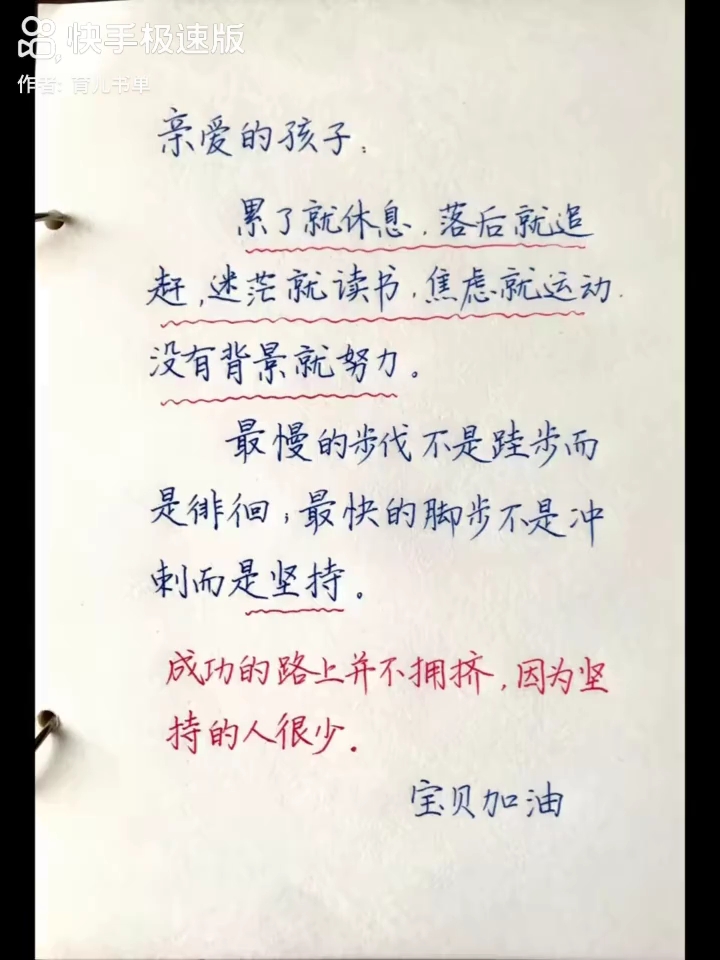 快手极速版
作者: 育儿书单
亲爱的孩子：
累了就休息，落后就追
赶，迷茫就读书，焦虑就运动.
没有背景就努力。
最慢的步伐不是跬步而
是徘徊；最快的脚步不是冲
刺而是坚持。
成功的路上并不拥挤，因为坚
持的人很少.
宝贝加油